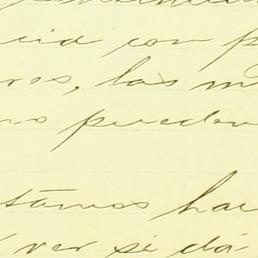 cia con p
res, las m
no pueden
stamos ha
ver si dá